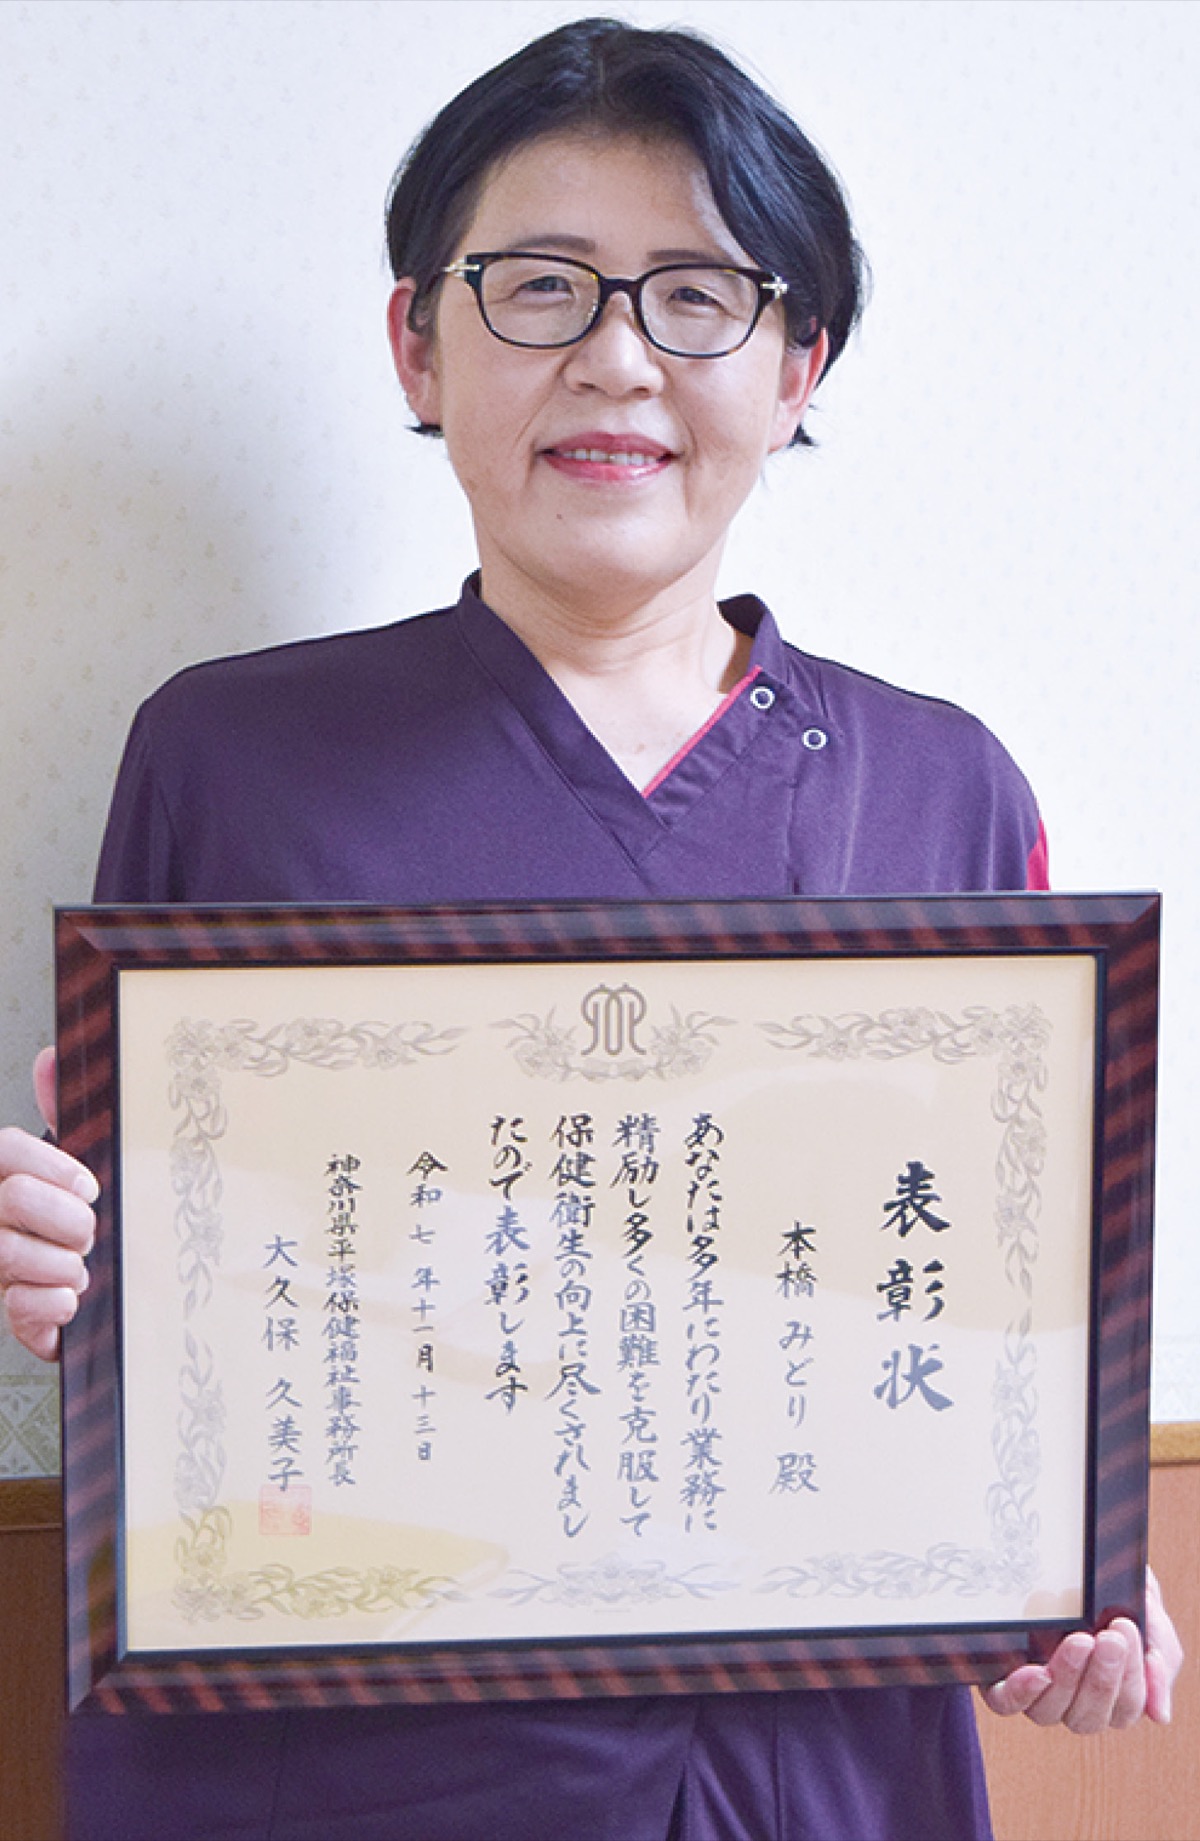 表彰状
本橋 みどり 殿
あなたは多年にわたり業務に
精励し多くの困難を克服して
保健衛生の向上に尽くされまし
たので表彰します
令和七年十一月十三日
神奈川県平塚保健福祉事務所長
大久保 久美子